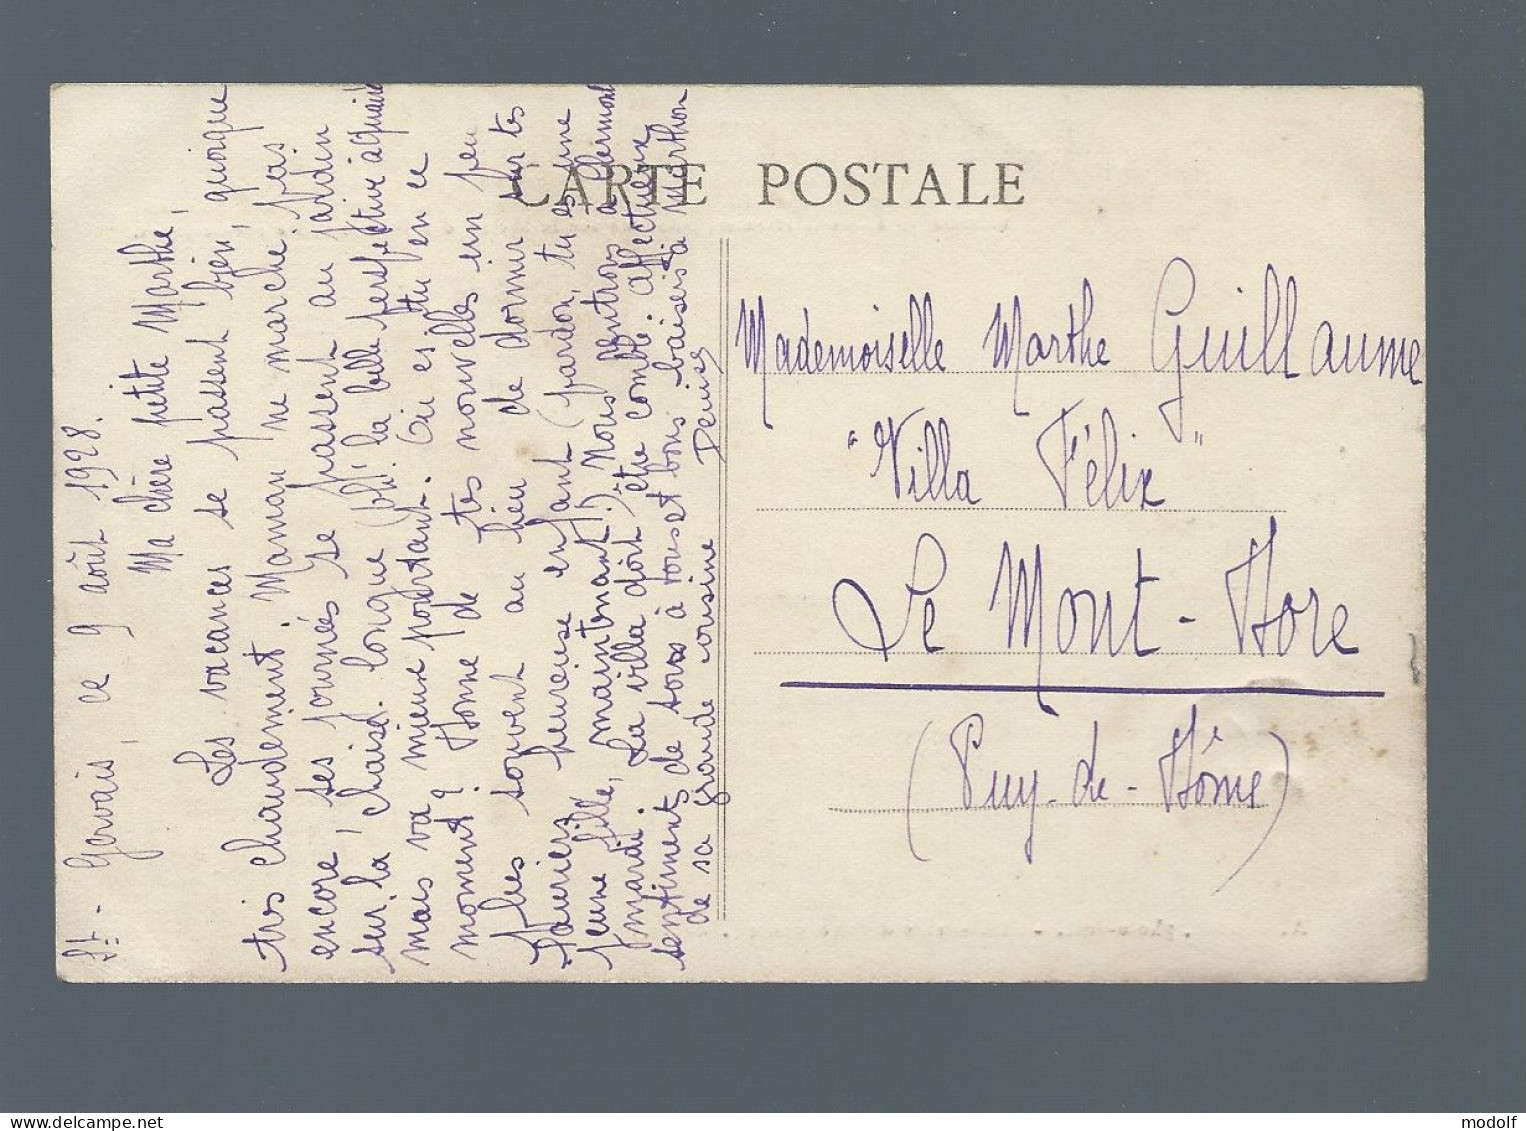 CARTE POSTALE
St-Gervais, ce 9 août 1928.
Ma chère petite Marthe,
Les vacances se passent bien, quoique
très chaudement. Maman ne marche pas
encore, ses journées se passent au jardin
sur la chaise longue (oh! la belle perspective
mais va mieux pourtant. Où es tu en ce
moment? Donne de tes nouvelles un peu
plus souvent au lieu de dormir sur tes
lauriers heureuse enfant (pardon, tu es une
jeune fille, maintenant!) Nous rentrons à Clermont
mardi. La villa doit être comble. Affectueux
sentiments de tous à tous et bons baisers à Marthon
de sa grande cousine
Denise
Mademoiselle Marthe Guillaume
"Villa Félix"
Le Mont-Dore
(Puy-de-Dôme)
modolf